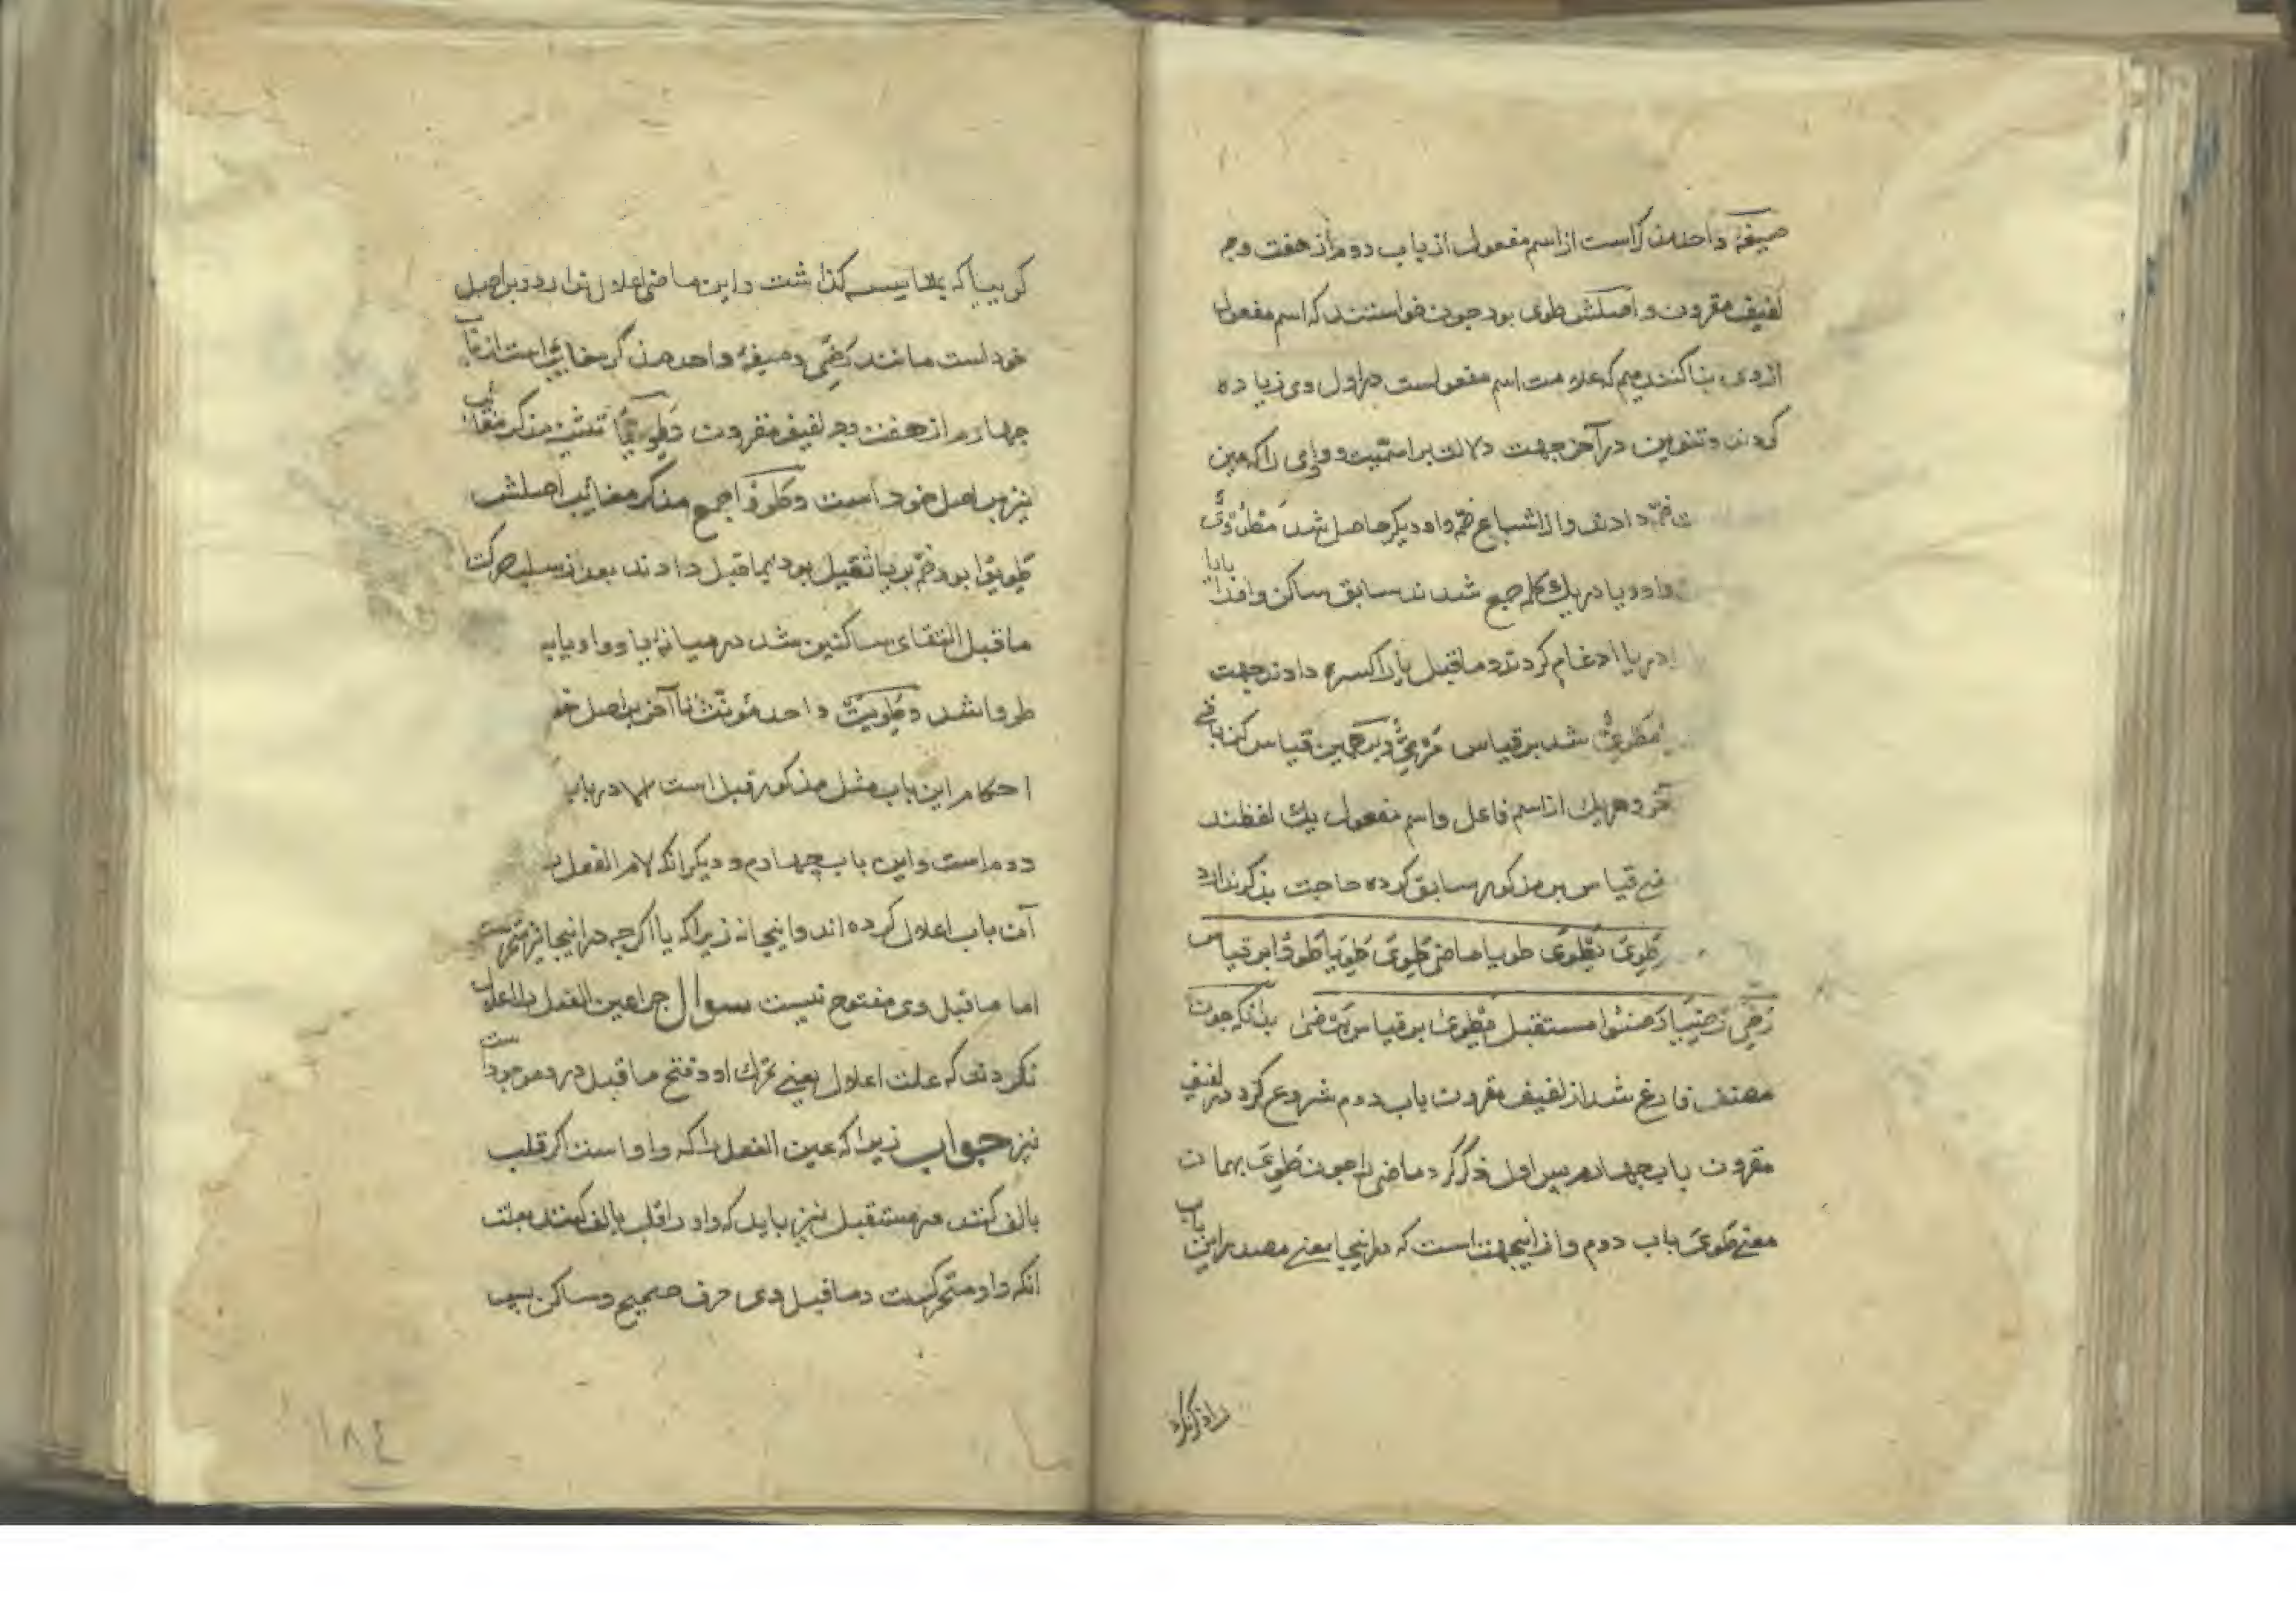 صیغهٔ واحد مذکر است از اسم مفعول از باب دوم از هفت وجه
لفیف مقرون و اصلش طوی بود چون خواستند که اسم مفعول
از وی بنا کنند میم که علامت اسم مفعولست در اول وی زیاده
کردند و تنوین در آخر جهت دلالت بر اسمیت و واوی را که عین
ضمّه دادند و از اشباع ضمه واو دیگر حاصل شد مَطْوُوْیٌ
واو و یا در یک کلمه جمع شدند سابق ساکن واو را یا
در یا ادغام کردند و ماقبل یا را کسره دادند جهت
مَطْوِیٌّ شد بر قیاس مَرْمِیٌّ و بر همین قیاس کن باقی
آخر و هر یک از اسم فاعل و اسم مفعول یک لفظند
قیاس بر مذکور سابق کرده حاجت بذکر ندارد
طَوِیَ یَطْوَی طویا ماضی طَوِیَ طَوِیَا طَوُوْا بر قیاس
رَضِیَ رَضِیَا رَضُوْا مستقبل یَطْوَی بر قیاس یَرْضَی بدانکه چون
مصنف فارغ شد از لفیف مقرون باب دوم شروع کرد در لفیف
مقرون باب چهارم پس اول ذکر کرد ماضی را چون طَوِیَ بهمان
معنی طَوَی باب دوم و از اینجهت است که در اینجا معنی مصدر این باب
را ذکر نکرد
گوییا که بمقایسه گذاشت و این ماضی اعلال ندارد و بر اصل
خود است مانند رَضِیَ و صیغهٔ واحد مذکر غایب است از باب
چهارم از هفت وجه لفیف مقرون و طَوِیَا تثنیه مذکر مغایب
نیز بر اصل خود است و طَوُوْا جمع مذکر مغایب اصلش
طَوِیُوا بود ضمّه بر یا ثقیل بود بماقبل دادند بعد از سلب حرکت
ماقبل التقای ساکنین شد در میانهٔ یا و واو یا
طووا شد و طَوِیَتْ واحد مؤنث تا آخر بر اصل خود
احکام این باب مثل مذکور قبل است در باب
دوم است و این باب چهارم و دیگر انکه لام الفعل
آن باب اعلال کرده اند و اینجا نه زیرا که یا اگرچه در اینجا نیز متحرکست
اما ماقبل وی مفتوح نیست سوال چرا عین الفعل را اعلال
نکردند که علت اعلال یعنی تحرک او و فتح ماقبل در و موجود است
نیز جواب زیرا که عین الفعل را که واو است اگر قلب
بالف کنند در مستقبل نیز باید که واو را قلب بالف کنند بعلت
انکه واو متحرکست و ماقبل وی حرف صحیح و ساکن پس
۱۸٤